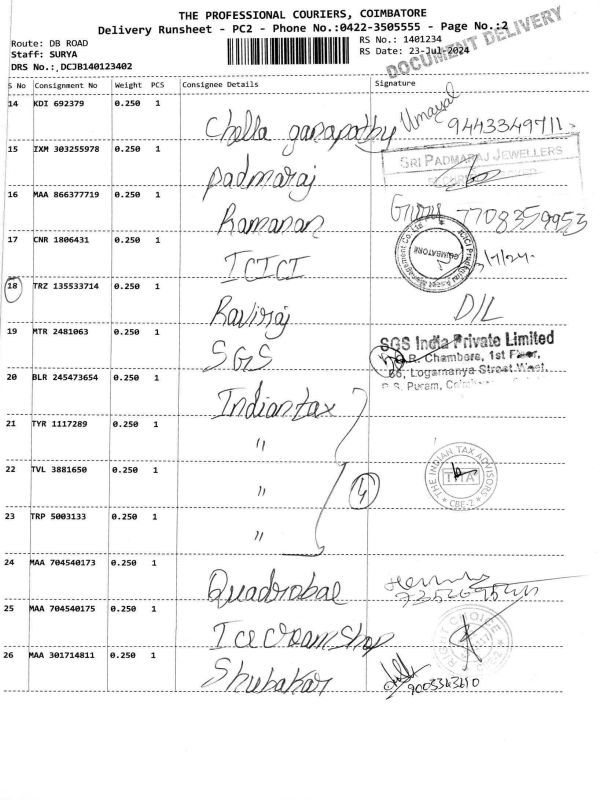 THE PROFESSIONAL COURIERS, COIMBATORE
Delivery Runsheet - PC2 - Phone No.:0422-3505555 - Page No.:2
DOCUMENT DELIVERY
Route: DB ROAD
RS No.: 1401234
Staff: SURYA
RS Date: 23-Jul-2024
DRS No.: DCJB140123402
S No Consignment No Weight PCS Consignee Details Signature
14 KDI 692379 0.250 1 Chella ganapathy Umayal 9443349711
15 IXM 303255978 0.250 1 Padmaraj SRI PADMARAJ JEWELLERS
16 MAA 866377719 0.250 1 Ramanan 7708359953
17 CNR 1806431 0.250 1 ICICI ICICI Prudential Asset Management Co. Ltd COIMBATORE
18 TRZ 135533714 0.250 1 Raviraj D/L
19 MTR 2481063 0.250 1 SGS SGS India Private Limited
R. Chambers, 1st Floor,
Logamanya Street West,
R.S. Puram,
20 BLR 245473654 0.250 1 Indian tax
21 TYR 1117289 0.250 1 "
22 TVL 3881650 0.250 1 " 4 THE INDIAN TAX ADVISORS CBE-2
23 TRP 5003133 0.250 1 "
24 MAA 704540173 0.250 1 Quadrobal
25 MAA 704540175 0.250 1 Icecream shop RIGHT CHOICE
26 MAA 301714811 0.250 1 Shubakar 9003343610